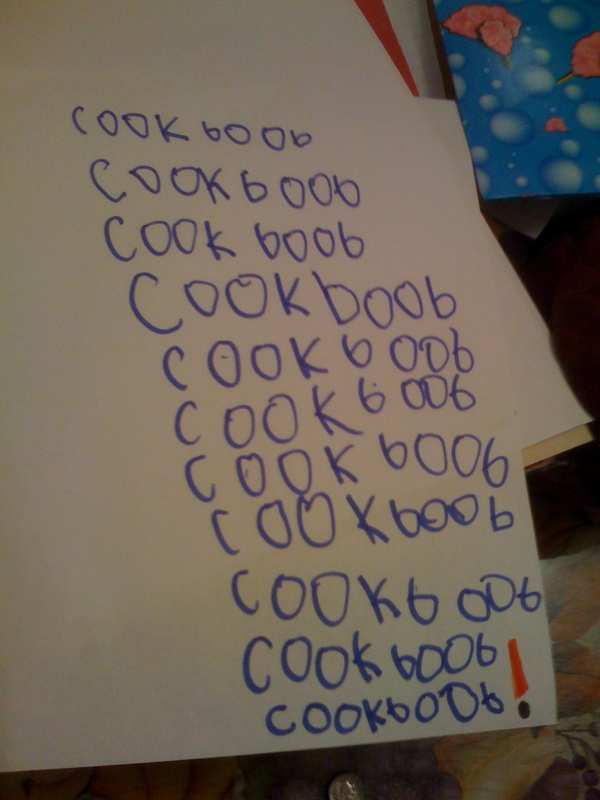 cook boob
Cook boob
Cook boob
Cook boob
cook boob
cook boob
cook boob
cook boob
cook boob
Cook boob
cook boob!